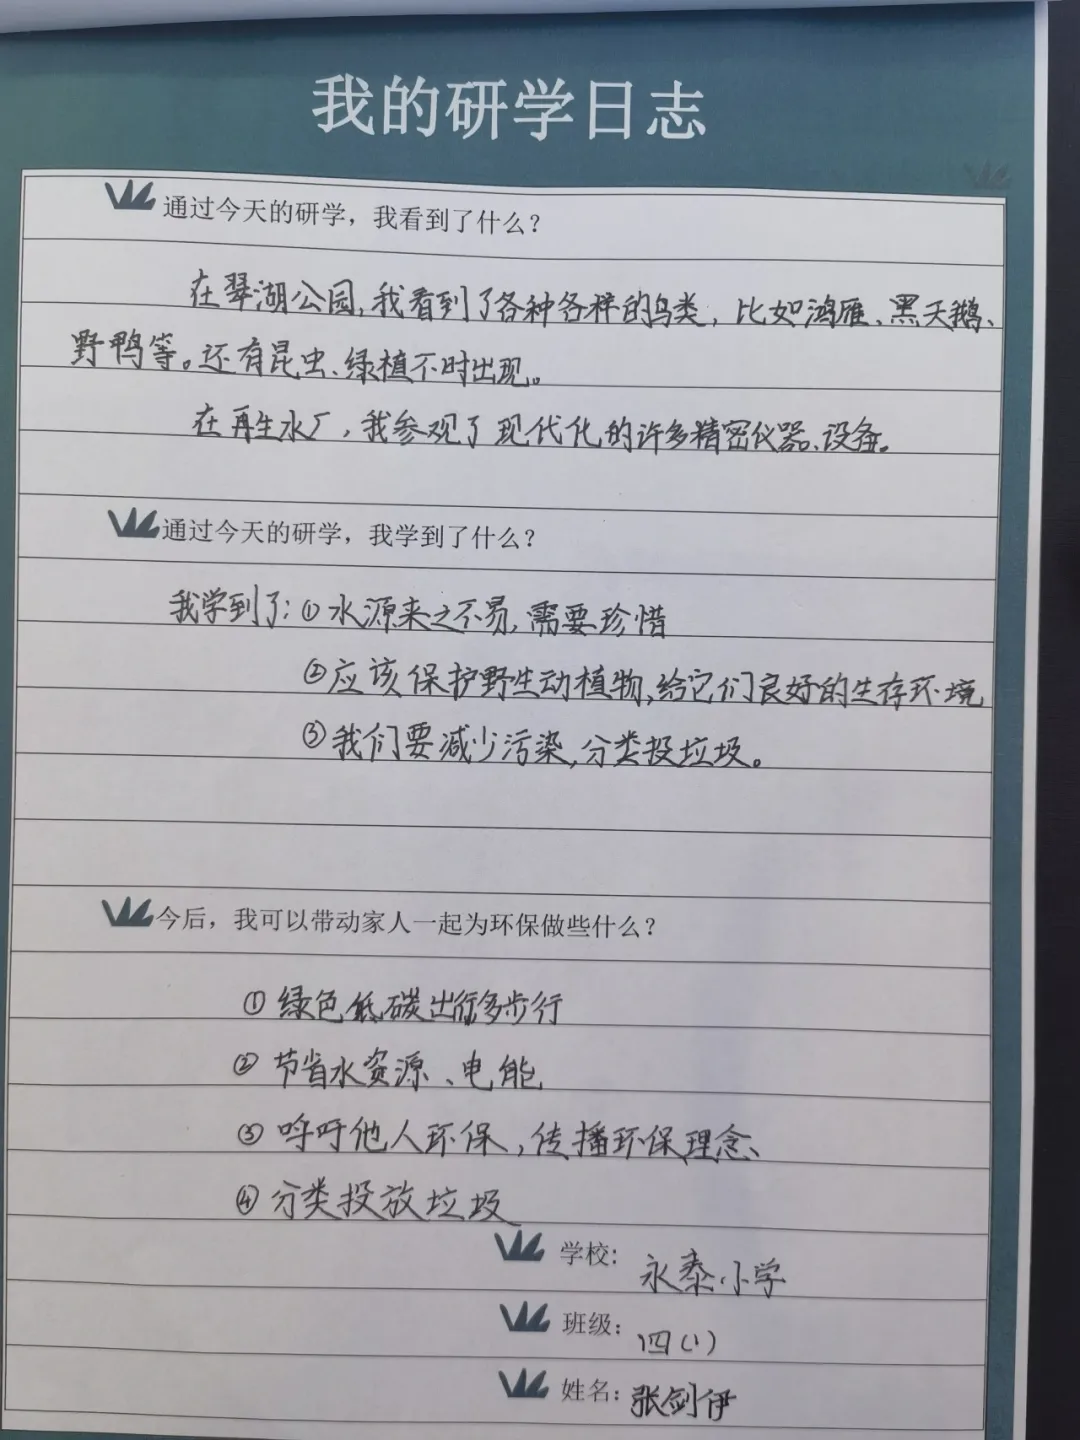 我的研学日志
通过今天的研学，我看到了什么？
在翠湖公园，我看到了各种各样的鸟类，比如鸿雁、黑天鹅、
野鸭等。还有昆虫、绿植不时出现。
在再生水厂，我参观了现代化的许多精密仪器、设备。
通过今天的研学，我学到了什么？
我学到了：①水源来之不易，需要珍惜
②应该保护野生动植物，给它们良好的生存环境
③我们要减少污染，分类投垃圾。
今后，我可以带动家人一起为环保做些什么？
①绿色低碳出行多步行
②节省水资源、电能
③呼吁他人环保，传播环保理念、
④分类投放垃圾
学校：永泰小学
班级：四(1)
姓名：张剑伊